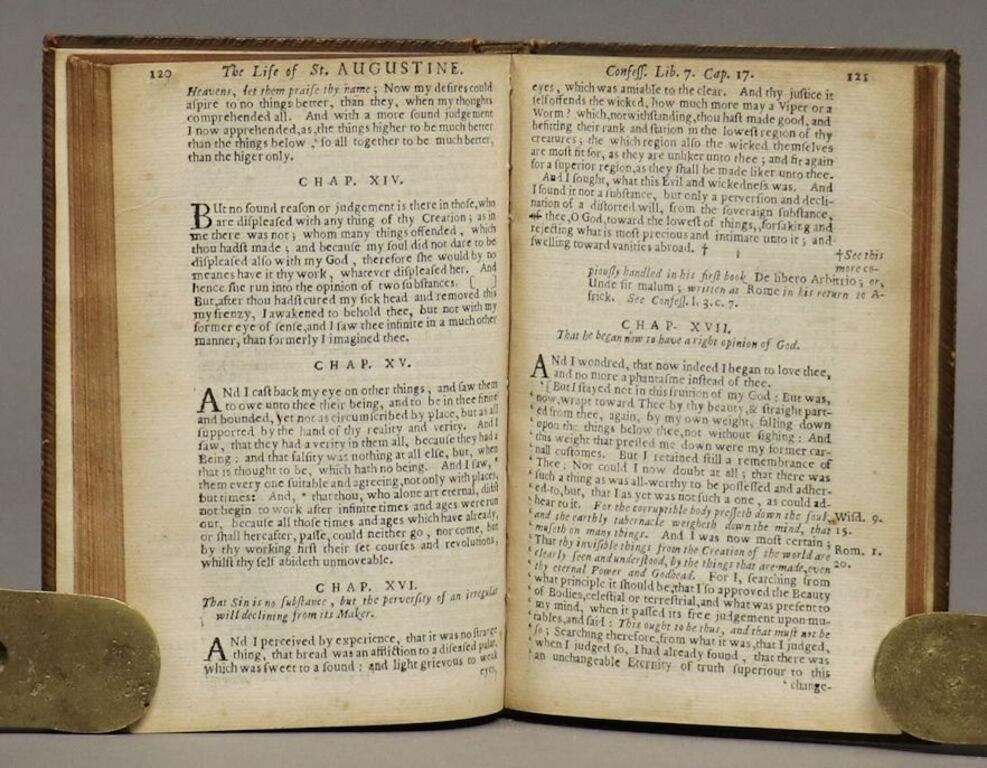 120
The Life of St. AUGUSTINE.
Heavens, let them praiſe thy name; Now my deſires could
aſpire to no things better, than they, when my thoughts
comprehended all. And with a more ſound judgement
I now apprehended, as, the things higher to be much better
than the things below, ſo all together to be much better,
than the higer only.
CHAP. XIV.
BUt no ſound reaſon or judgement is there in thoſe, who
are diſpleaſed with any thing of thy Creation; as in
me there was not; whom many things offended, which
thou hadſt made; and becauſe my ſoul did not dare to be
diſpleaſed alſo with my God, therefore ſhe would by no
meanes have it thy work, whatever diſpleaſed her. And
hence ſhe run into the opinion of two ſubſtances. [ ]
But, after thou hadſt cured my ſick head and removed this
my frenzy, I awakened to behold thee, but not with my
former eye of ſenſe, and I ſaw thee infinite in a much other
manner, than formerly I imagined thee.
CHAP. XV.
ANd I caſt back my eye on other things, and ſaw them
to owe unto thee their being, and to be in thee finite
and bounded, yet not as circumſcribed by place, but as all
ſupported by the hand of thy reality and verity. And I
ſaw, that they had a verity in them all, becauſe they had a
Being: and that falſity was nothing at all elſe, but, when
that is thought to be, which hath no being. And I ſaw,
them every one ſuitable and agreeing, not only with places,
but times: And, that thou, who alone art eternal, didſt
not begin to work after infinite times and ages were run
out, becauſe all thoſe times and ages which have already,
or ſhall hereafter, paſſe, could neither go, nor come, but
by thy working firſt their ſet courſes and revolutions,
whilſt thy ſelf abideth unmoveable.
CHAP. XVI.
That Sin is no ſubſtance, but the perverſity of an irregular
will declining from its Maker.
ANd I perceived by experience, that it was no ſtrange
thing, that bread was an affliction to a diſeaſed palat,
which was ſweet to a ſound: and light grievous to weak
eyes,
Confeſſ. Lib. 7. Cap. 17.
121
eyes, which was amiable to the clear. And thy juſtice it
ſelf offends the wicked, how much more may a Viper or a
Worm? which, notwithſtanding, thou haſt made good, and
befitting their rank and ſtation in the loweſt region of thy
creatures; the which region alſo the wicked themſelves
are moſt fit for, as they are unliker unto thee; and fit again
for a ſuperior region, as they ſhall be made liker unto thee.
And I ſought, what this Evil and wickedneſs was. And
I found it not a ſubſtance, but only a perverſion and decli-
nation of a diſtorted will, from the ſoveraign ſubſtance,
thee, O God, toward the loweſt of things, forſaking and
rejecting what is moſt precious and intimate unto it; and
ſwelling toward vanities abroad. †
† See this
more co-
piouſly handled in his firſt book De libero Arbitrio; or,
Unde ſit malum; written at Rome in his return to A-
frick. See Confeſſ. l. 3. c. 7.
CHAP. XVII.
That he began now to have a right opinion of God.
ANd I wondred, that now indeed I began to love thee,
and no more a phantaſme inſtead of thee.
‘ [But I ſtayed not in this fruition of my God: But was,
‘ now, wrapt toward Thee by thy beauty, & ſtraight part-
‘ ed from thee, again, by my own weight, falling down
‘ upon the things below thee, not without ſighing: And
‘ this weight that preſſed me down were my former car-
‘ nall cuſtomes. But I retained ſtill a remembrance of
‘ Thee; Nor could I now doubt at all; that there was
‘ ſuch a thing as was all-worthy to be poſſeſſed and adher-
‘ ed-to, but, that I as yet was not ſuch a one, as could ad-
‘ hear to it. For the corruptible body preſſeth down the ſoul,
Wiſd. 9.
‘ and the earthly tabernacle weigheth down the mind, that
15.
‘ muſeth on many things. And I was now moſt certain;
‘ That thy inviſible things from the Creation of the world are
Rom. 1.
‘ clearly ſeen and underſtood, by the things that are made, even
20.
‘ thy eternal Power and Godhead. For I, ſearching from
‘ what principle it ſhould be, that I ſo approved the Beauty
‘ of Bodies, celeſtial or terreſtrial, and what was preſent to
‘ my mind, when it paſſed its free judgement upon mu-
‘ tables, and ſaid: This ought to be thus, and that muſt not be
‘ ſo; Searching therefore, from what it was, that I judged,
‘ when I judged ſo, I had already found, that there was
‘ an unchangeable Eternity of truth ſuperiour to this
‘ change-